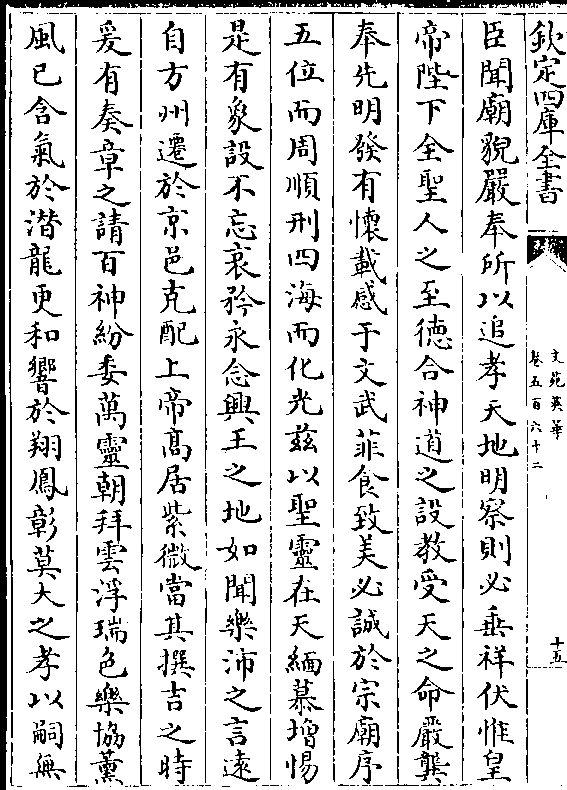 欽定四庫全書
文苑英華
卷五百六十二
十五
臣聞廟貌嚴奉所以追孝天地明察則必垂祥伏惟皇
帝陛下全聖人之至德合神道之設教受天之命嚴龔
奉先明發有懷載感于文武菲食致美必誠於宗廟序
五位而周順刑四海而化光茲以聖靈在天緬慕增惕
是有象設不忘哀矜永念興王之地如聞樂沛之言遠
自方州遷於京邑克配上帝高居紫微當其撰吉之時
爰有奏章之請百神紛委萬靈朝拜雲浮瑞色樂協薰
風已含氣於潛龍更和響於翔鳳彰莫大之孝以嗣無